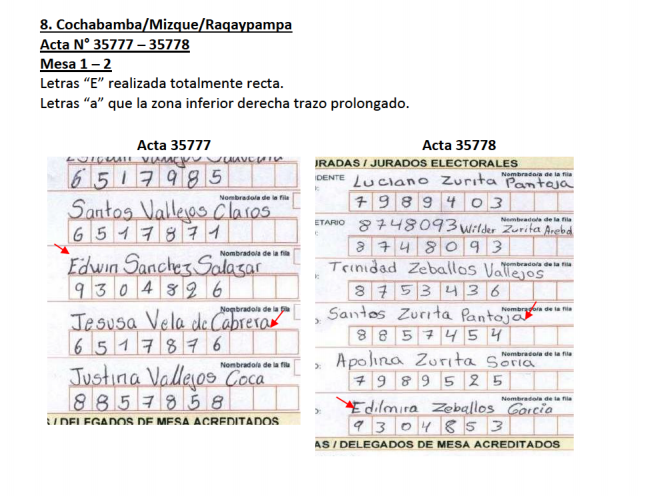 8. Cochabamba/Mizque/Raqaypampa
Acta N° 35777 – 35778
Mesa 1 – 2
Letras “E” realizada totalmente recta.
Letras “a” que la zona inferior derecha trazo prolongado.
Acta 35777
6517985
Nombrado/a de la fila
Santos Vallejos Claros
6517871
Nombrado/a de la fila
Edwin Sanchez Salazar
9304826
Nombrado/a de la fila
Jesusa Vela de Cabrera
6517876
Nombrado/a de la fila
Justina Vallejos Coca
8857858
/ DELEGADOS DE MESA ACREDITADOS
Acta 35778
JRADAS / JURADOS ELECTORALES
IDENTE
Nombrado/a de la fila
Luciano Zurita Pantoja
7989403
ETARIO
Nombrado/a de la fila
8748093 Wilder Zurita
8748093
Nombrado/a de la fila
Trinidad Zeballos Vallejos
8753436
Nombrado/a de la fila
Santos Zurita Pantoja
8857454
Nombrado/a de la fila
Apolina Zurita Soria
7989525
Nombrado/a de la fila
Edilmira Zeballos Garcia
9304853
AS / DELEGADOS DE MESA ACREDITADOS